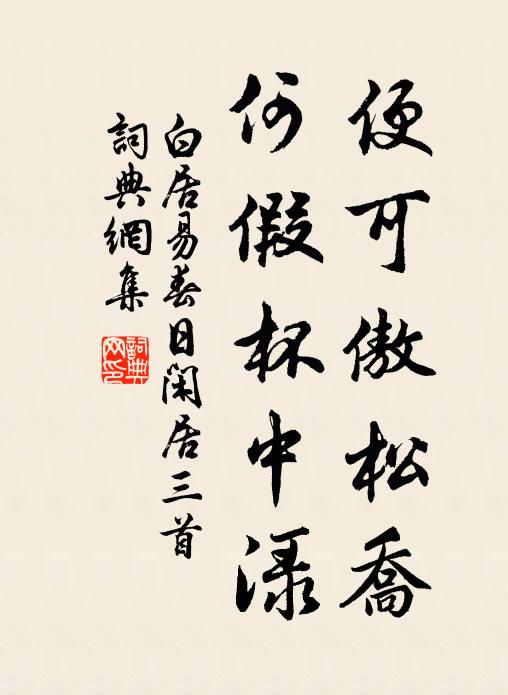 便可傲松喬
何假杯中渌
白居易春日閑居三首
詞典網集
詞典網印